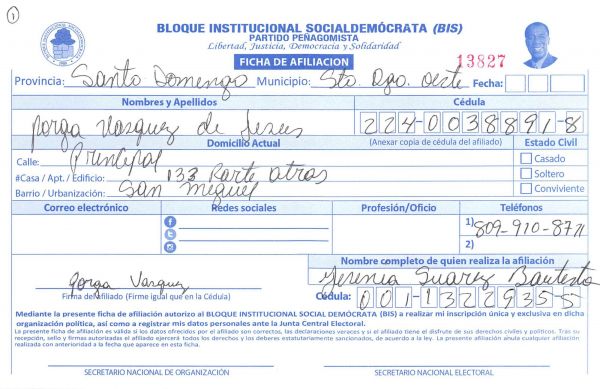 1
BLOQUE INSTITUCIONAL SOCIALDEMÓCRATA (BIS)
PARTIDO PEÑAGOMISTA
Libertad, Justicia, Democracia y Solidaridad
FICHA DE AFILIACION 13827
Provincia: Santo Domingo Municipio: Sto Dgo. Oeste Fecha:
Nombres y Apellidos Cédula
Yorga Vasquez de Jesus 224-0038891-8
Domicilio Actual (Anexar copia de cédula del afiliado) Estado Civil
Calle: Principal Casado
#Casa / Apt. / Edificio: 133 Parte atras Soltero
Barrio / Urbanización: San Miguel Conviviente
Correo electrónico Redes sociales Profesión/Oficio Teléfonos
1) 809-910-8711
2)
Nombre completo de quien realiza la afiliación
Yorga Vasquez Yesenia Suarez Bautista
Firma del Afiliado (Firme igual que en la Cédula) Cédula: 001-1322935-5
Mediante la presente ficha de afiliación autorizo al BLOQUE INSTITUCIONAL SOCIAL DEMÓCRATA (BIS) a realizar mi inscripción única y exclusiva en dicha
organización política, así como a registrar mis datos personales ante la Junta Central Electoral.
La presente ficha de afiliación es válida si los datos ofrecidos por el afiliado son correctos, las declaraciones veraces y si el afiliado tiene el disfrute de sus derechos civiles y políticos. Tras su
recepción, sello y firmas autorizadas el afiliado ejercerá todos los derechos y los deberes estatutariamente sancionados, de acuerdo a la ley. La presente afiliación anula cualquier afiliación
realizada con anterioridad a la fecha que aparece en esta ficha.
SECRETARIO NACIONAL DE ORGANIZACIÓN SECRETARIO NACIONAL ELECTORAL